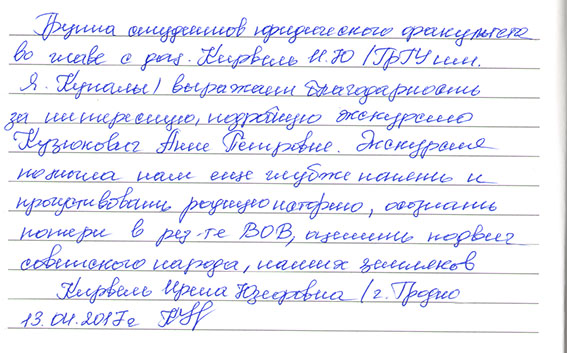 Группа студентов юридического факультета
во главе с доц. Кирвель И.Ю /ГрГУ им.
Я. Купалы/ выражает благодарность
за интересную, подробную экскурсию
Кузюкович Анне Петровне. Экскурсия
помогла нам еще глубже понять и
прочувствовать родную историю, осознать
потери в рез-те ВОВ, оценить подвиг
советского народа, наших земляков
Кирвель Ирена Юзефовна /г. Гродно
13.04.2017г